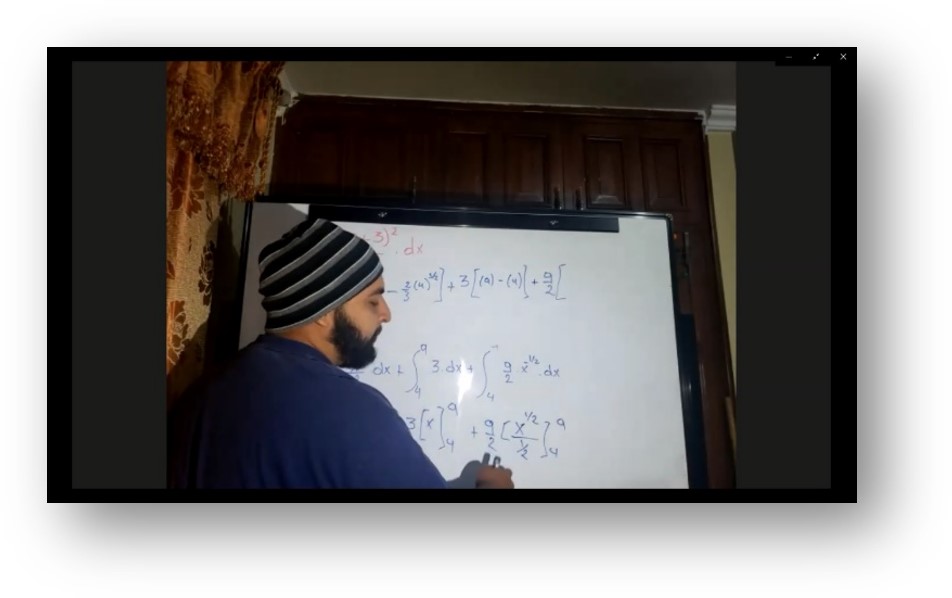 3)² . dx
- 2/3 (4)^3/2 ] + 3 [ (9) - (4) ] + 9/2 [
dx + ∫₄⁹ 3. dx + ∫₄ 9/2 x^-1/2 . dx
3 [ x ]₄⁹ + 9/2 [ x^1/2 / 1/2 ]₄⁹